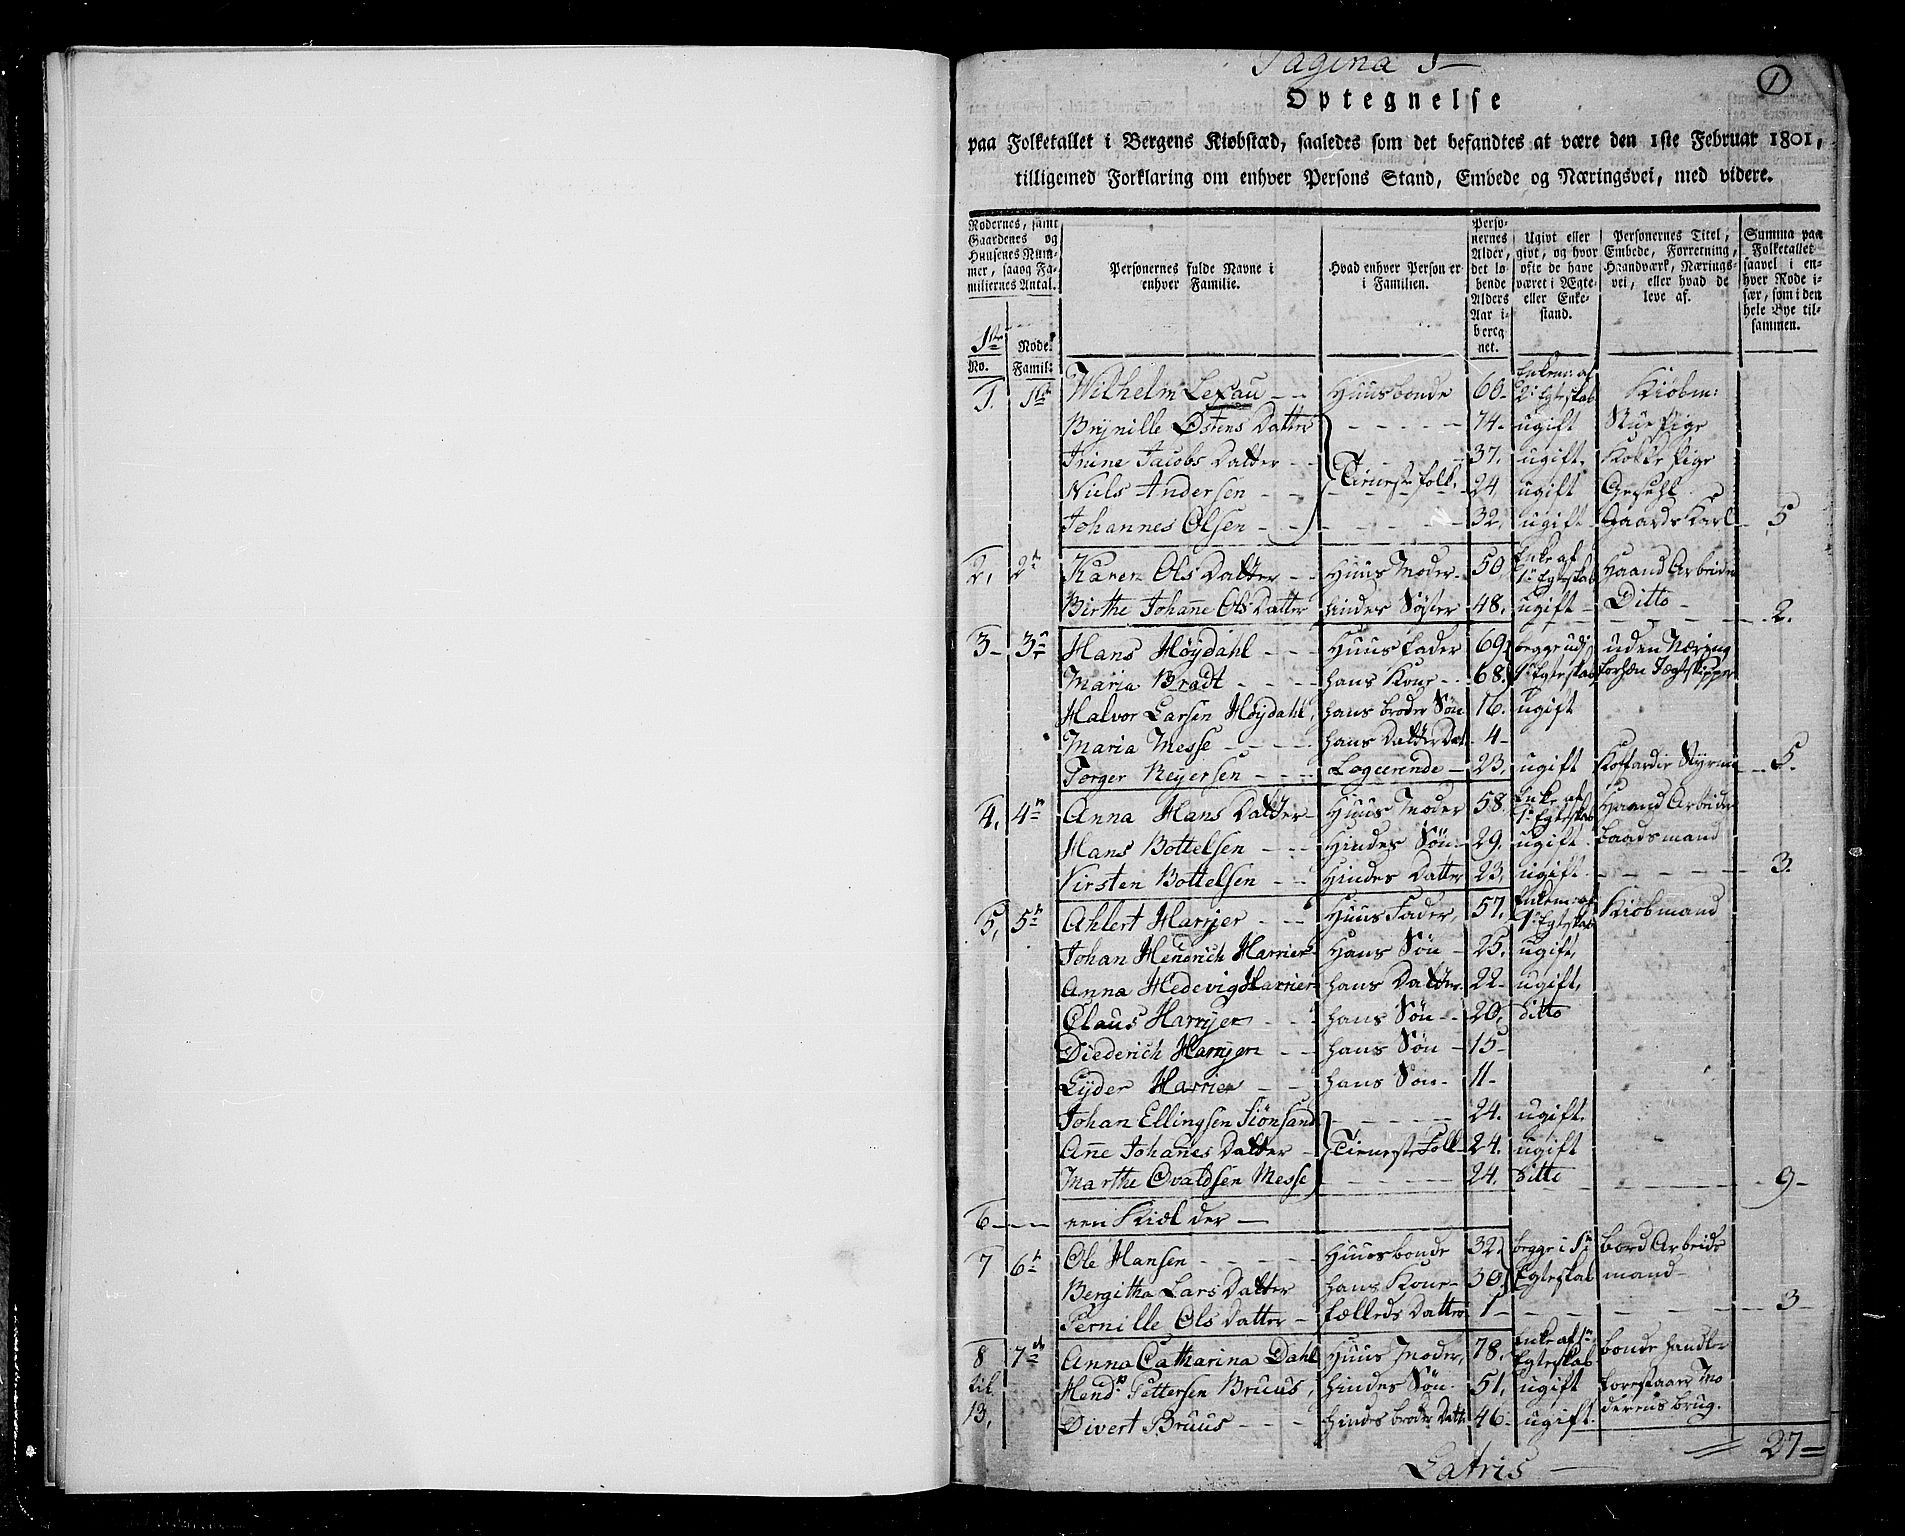 Pagina 1
1
Optegnelse
paa Folketallet i Bergens Kiøbstæd, saaledes som det befandtes at være den 1ste Februar 1801,
tilligemed Forklaring om enhver Persons Stand, Embede og Næringsvei, med videre.
Rodernes, samt Gaardenes og Huusenes Nummer, saaog Familiernes Antal.
Personernes fulde Navne i enhver Familie.
Hvad enhver Person er i Familien.
Personernes Alder, det lobende Alders Aar iberegnet.
Ugivt eller givt, og hvor ofte de have været i Ægte- eller Enkestand.
Personernes Titel, Embede, Forretning, Haandværk, Næringsvei, eller hvad de leve af.
Summa paa Folketallet saavel i enhver Rode især, som i den hele Bye tilsammen.
1ste Rode.
No. Famil:
1. 1ste Wilhelm Lexau Huusbonde 60 Enkem: af 2 Egteskab Kiøbm:
Brynille Østens Datter 74 ugift Stue Pige
Trine Jacobs Datter 37. ugift. Kokke Pige
Niels Andersen Tieneste folk 24 ugift Gesehl
Johannes Olsen 32. ugift Gaards Karl 5
2. 2n Karen Ols Datter Huus Moder 50 Enke af 1 Egteskab Haand Arbeide
Birthe Johanne Ols Datter hindes Søster 48. ugift Ditto 2.
3 3n Hans Høydahl Huus Fader 69 begge udi uden Næring
Maria Bradt hans Kone 68. 1 Egteskab forhen Jægt Skipper
Halvor Larsen Høydahl, hans broder Søn 16. ugift
Maria Messe hans Datter Dat. 4
Torger Reyersen Logeerende 23. ugift Koffardie Styrm 5.
4. 4n Anna Hans Datter Huus Moder 58. Enke af 1 Egteskab Haand Arbeide
Hans Bottelsen Hindes Søn 29. ugift baadsmand
Kirsten Bottelsen Hindes Datter 23. ugift 3.
5. 5n Ahlert Harrjer Huus Fader 57. Enkem: af 1 Egteskab Kiøbmand
Johan Hendrich Harrier Hans Søn 25. ugift,
Anna Hedevig Harrier hans Datter 22 ugift,
Claus Harrjer hans Søn 20. ditto
Diederich Harrjer hans Søn 15
Lyder Harrier hans Søn 11
Johan Ellingsen Siönsand 24. ugift.
Anne Johannes Datter Tieneste Folk 24. ugift
Marthe Ovaldsen Messe 24. ditto 9
6 een Kiælder
7 6n Ole Hansen Huusbonde 32. begge i 1n bord Arbeids
Bergitha Lars Datter hans Kone 30. Egteskab mand
Pernille Ols Datter fælleds Datter 1 3
8 7de Anna Catharina Dahl Huus Moder, 78. Enke af 1n Egteskab bonde handler
til Hendr. Pettersen Bruus, hindes Søn 51. ugift forestaaer Mo
13. Divert Bruus hindes broder Datt. 46 ugift. derens brug.
27
Latris